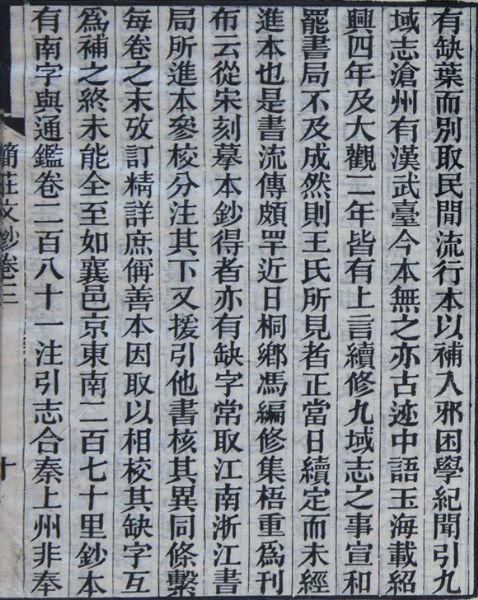 有缺葉而別取民間流行本以補入邪困學紀聞引九
域志滄州有漢武臺今本無之亦古迹中語玉海載紹
興四年及大觀二年皆有上言續修九域志之事宣和
罷書局不及成然則王氏所見者正當日續定而未經
進本也是書流傳頗罕近日桐鄉馮編修集梧重爲刊
布云從宋刻摹本鈔得者亦有缺字常取江南浙江書
局所進本參校分注其下又援引他書核其異同條繫
每卷之末攷訂精詳庶偁善本因取以相校其缺字互
爲補之終未能全至如襄邑京東南二百七十里鈔本
有南字與通鑑卷二百八十一注引志合秦上州非奉
簡莊文鈔卷三
十